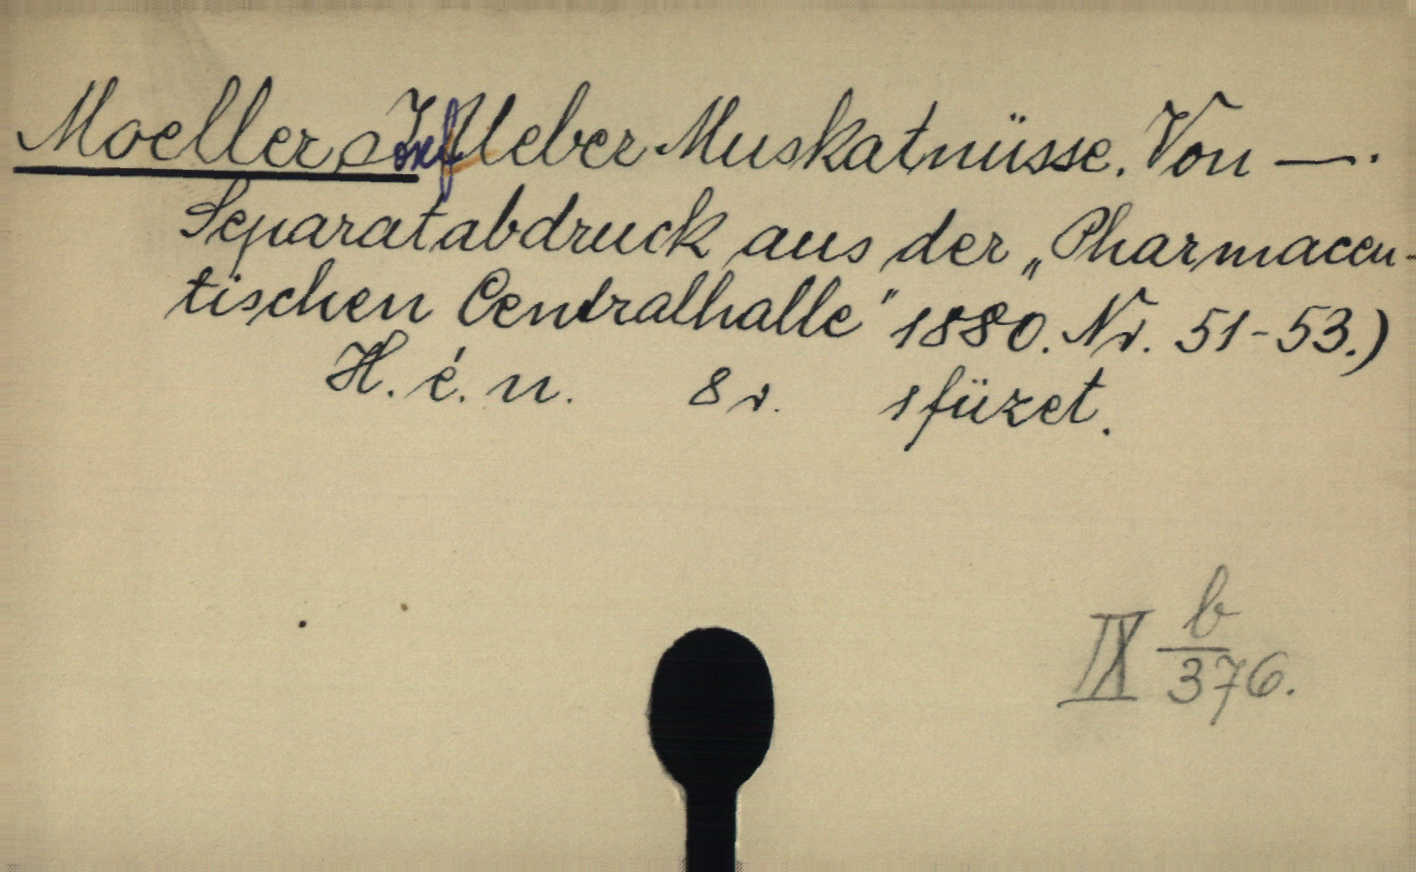 Moeller, Josef Ueber Muskatnüsse. Von —.
Separatabdruck aus der „Pharmaceu-
tischen Centralhalle" 1880. Nr. 51-53.)
H. é. n. 8r. 1 füzet.
IX b/376.